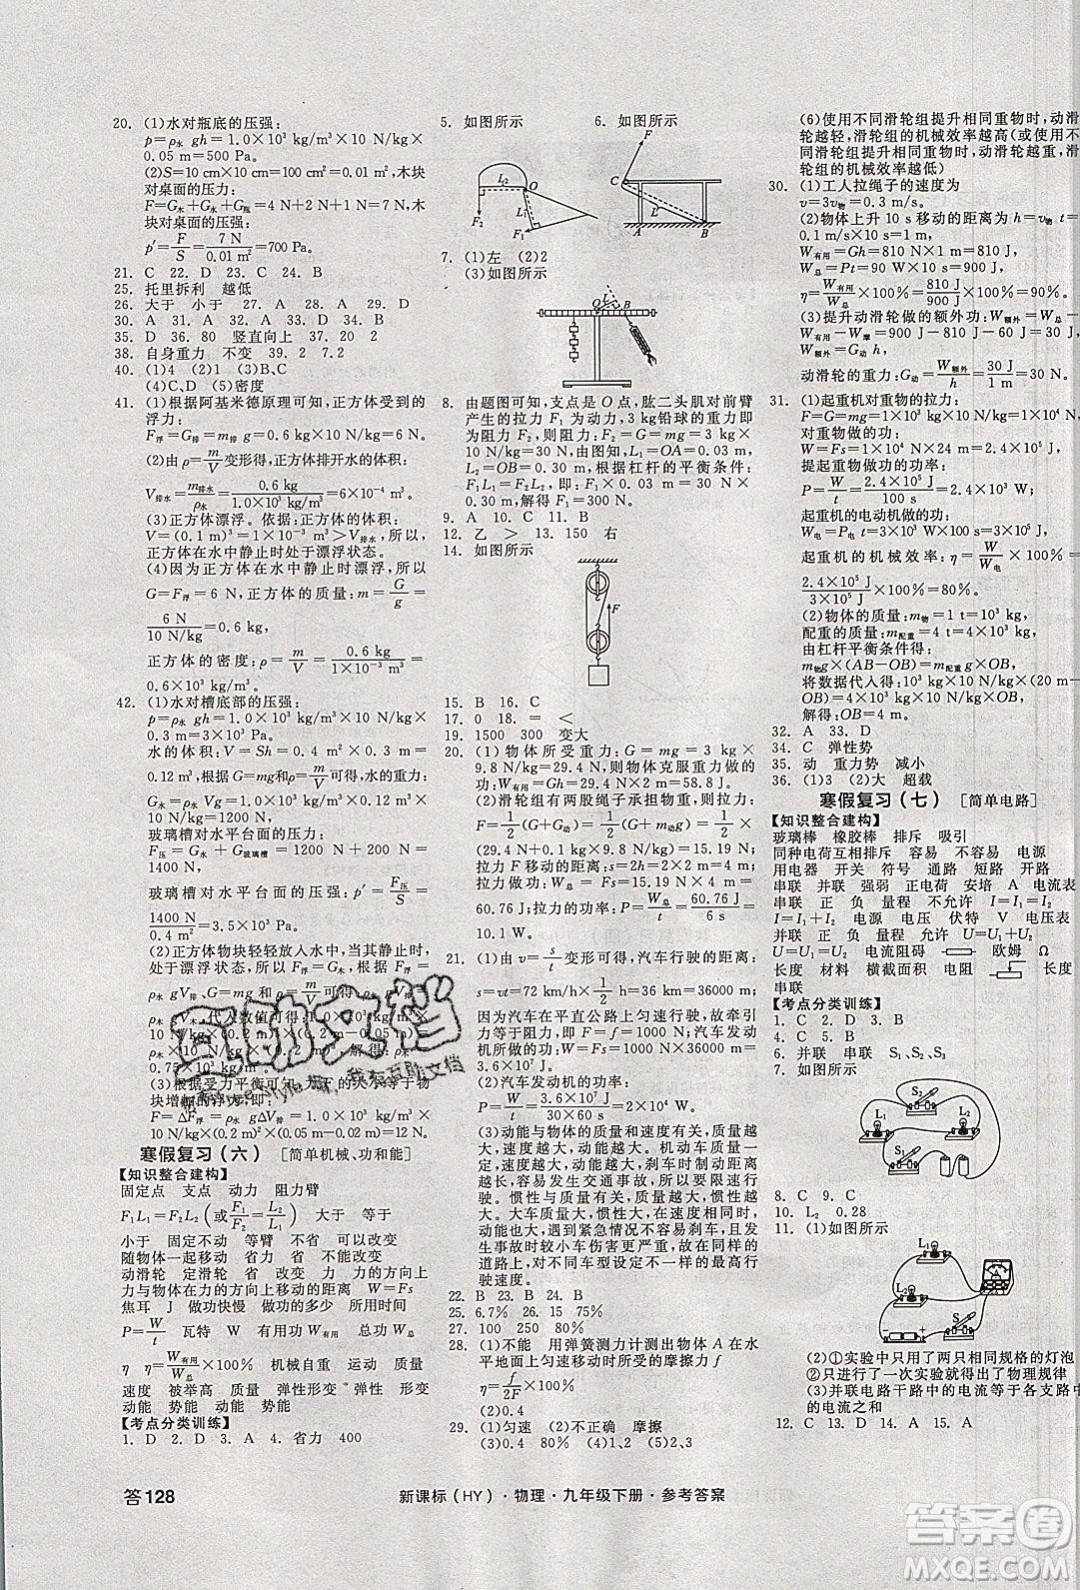 20. (1)水对瓶底的压强:
p=ρ水 gh=1.0×10³ kg/m³×10 N/kg×
0.05 m=500 Pa.
(2)S=10 cm×10 cm=100 cm²=0.01 m²,木
块对桌面的压力:
F=G木+G水+G瓶=4 N+1 N+2 N=7 N,木
块对桌面的压强:
p′=F/S=7 N/0.01 m²=700 Pa.
21. C 22. D 23. C 24. B
25. 托里拆利 越低
26. 大于 小于 27. A 28. A 29. A
30. A 31. A 32. D 33. A 34. C
35. D 36. 80 竖直向上 37. 20 2
38. 自身重力 不变 39. 2 7.2
40. (1)4 (2)1 (3)B、C
(4)C、D (5)密度
41. (1)根据阿基米德原理可知,正方体受到的
浮力:
F浮=G排=m排g=0.6 kg×10 N/kg=6 N.
(2)由ρ=m/V变形得,正方体排开水的体积:
V排水=m排水/ρ水=0.6 kg/1.0×10³ kg/m³=6×10⁻⁴ m³.
(3)正方体漂浮。依据:正方体的体积:
V=(0.1 m)³=1×10⁻³ m³>V排水,所以,
正方体在水中静止时处于漂浮状态。
(4)因为正方体在水中静止时处于漂浮,所以
G=F浮=6 N,正方体的质量:m=G/g=
6 N/10 N/kg=0.6 kg,
正方体的密度:ρ=m/V=0.6 kg/1×10⁻³ m³=
0.6×10³ kg/m³.
42. (1)水对槽底部的压强:
p=ρ水 gh=1.0×10³ kg/m³×10 N/kg×
0.3 m=3×10³ Pa.
水的体积:V=Sh=0.4 m²×0.3 m=
0.12 m³,根据G=mg和ρ=m/V可得,水的重力:
G水=ρ水Vg=1.0×10³ kg/m³×0.12 m³×
10 N/kg=1200 N.
玻璃槽对水平台面的压力:
F压=G水+G玻璃槽=1200 N+200 N=
1400 N.
玻璃槽对水平台面的压强:p=F压/S=
1400 N/0.4 m²=3500 Pa.
(2)正方体物块轻轻放入水中,当其静止时处
于漂浮状态,所以F浮=G,即:F浮=G排=
ρ水gV排=ρ物gV物,代入数值可得:1.0×
10³ kg/m³×
0.75×10³ kg/m³.
(3)根据受力平衡可知,F的大小等于物
块增加的浮力,即:
F=ΔF浮=ρ水 gΔV排=1.0×10³ kg/m³×
10 N/kg×(0.2 m)²×(0.05 m)=20 N.
寒假复习(六) [简单机械、功和能]
【知识整合建构】
固定点 支点 动力 阻力臂
F₁L₁=F₂L₂(或F₁/F₂=L₂/L₁) 大于 等于
小于 固定不动 等臂 不省 可以改变
随物体一起移动 省力 省 不能改变
动滑轮 定滑轮 省 改变 力 力
力与物体在力的方向上移动的距离 W=Fs
焦耳 J 做功快慢 做功的多少 所用时间
P=W/t 瓦特 W W有用 总功 W有用
η η=W有用/W总×100% 机械自重 运动 质量
速度 被举高 质量 高度 弹性形变
动能 势能 动能 势能
【考点分类训练】
1. D 2. D 3. A 4. 省力 400
5. 如图所示 6. 如图所示
L₂ O L₁ F₂ F₁
F C L A B
7. (1)左 (2)2
(3)如图所示
O L B
8. 由题图可知,支点是 O 点,肱二头肌对前臂
产生的拉力 F₁ 为动力,3 kg铅球的重力即
为阻力 F₂,则阻力:F₂=G=mg=3 kg×
10 N/kg=30 N,由图知,L₁=OA=0.03 m,
L₂=OB=0.30 m,根据杠杆的平衡条件:
F₁L₁=F₂L₂,即:F₁×0.03 m=30 N×
0.30 m,解得F₁=300 N.
9. A 10. C 11. B
12. 乙 > 13. 150 右
14. 如图所示
F
15. B 16. C
17. 0 18. = <
19. 1500 300 变大
20. (1)物体所受重力:G=mg=3 kg×
9.8 N/kg=29.4 N,则物体克服重力做的
功:W有用=Gh=29.4 N×2 m=58.8 J.
(2)滑轮组有两股绳子承担物重,则拉力:
F=1/2(G+G动)=1/2(G+m动g)=1/2×
(29.4 N+0.1 kg×9.8 N/kg)=15.19 N;
拉力F移动的距离:s=nh=2×2 m=4 m,
拉力F做的功:W总=Fs=15.19 N×4 m=
60.76 J;拉力的功率:P=W总/t=60.76 J/6 s≈
10.1 W.
21. (1)由v=s/t变形可得,汽车行驶的路程:
s=vt=72 km/h×30/60 h=36 km,
因为汽车在平直公路上匀速行驶,故牵
引力等于阻力,即:F=f=1000 N,汽车发
动机做的功:W=Fs=1000 N×36×
10³ m=3.6×10⁷ J.
(2)汽车发动机做功的功率:
P=W/t=3.6×10⁷ J/30×60 s=2×10⁴ W.
(3)动能与物体的质量和速度有关,质量越
大,速度越大,动能越大。机动车质量越大、
速度越大,动能越大,刹车时制动距离越
长,容易发生交通事故,所以要限制最高行
驶速度。惯性与质量有关,质量越大,惯性
越大。大车质量大,惯性大,在速度相同时,
遇到紧急情况不容易刹车,由于大车动能
也大,发生事故伤害更严重,故在同样的
道路上,对不同车型应限制不同的最高行
驶速度。
22. B 23. B 24. B
25. 6.7% 26. 15 75%
27. 100 250 80%
28. (1)不能 用弹簧测力计测出物体 A 在水
平地面上匀速移动时所受的摩擦力 f
η=f/2F×100%
(2)0.4
29. (1)匀速 (2)不正确 摩擦
(3)0.4 80% (4)2、3 (5)a
(6)使用不同滑轮组提升相同重物时,动滑
轮越轻,滑轮组的机械效率越高(或使用不
同滑轮组提升相同重物时,动滑轮越重,滑
轮组的机械效率越低)
30. (1)工人拉绳子的速度为
v=3v物=0.3 m/s.
(2)物体上升 10 s 移动的距离为 h=v物 t=
0.1 m/s×10 s=1 m,
W有用=Gh=810 N×1 m=810 J,
W总=Pt=90 W×10 s=900 J,
η=W有用/W总×100%=810 J/900 J×100%=90%.
(3)提升动滑轮做的额外功:W额外=
W总-W有用-W摩=900 J-810 J-60 J=30 J,
W额外=G动 h,
动滑轮的重力:G动=W额外/h=30 J/1 m=30 N.
31. (1)起重机对重物的拉力:
F=G=mg=1×10³ kg×10 N/kg=1×10⁴ N,
对重物做的功:
W=Fs=1×10⁴ N×24 m=2.4×10⁵ J,
提起重物做功的功率:
P=W/t=2.4×10⁵ J/100 s=2.4×10³ W.
起重机的电动机做的功:
W电=P电t=3×10³ W×100 s=3×10⁵ J,
起重机的机械效率:η=W/W电×100%=
2.4×10⁵ J/3×10⁵ J×100%=80%.
(2)物体的质量:m物=1 t=1×10³ kg,
配重的质量:m配重=4 t=4×10³ kg,
由杠杆平衡条件可得:
m物g×(AB-OB)=m配重g×OB,
将数据代入得:1×10³ kg×(20 m-
OB)=4×10³ kg×OB,
解得:OB=4 m.
32. A 33. D
34. C 弹性势
35. 动 重力势 减小
36. (1)3 (2)大 超载
寒假复习(七) [简单电路]
【知识整合建构】
玻璃棒 橡胶棒 排斥 吸引
同种电荷互相排斥 容易 不容易 电源
用电器 开关 符号 通路 短路 开路
串联 并联 强弱 正电荷 安培 A 电流表
串联 正 负 量程 不允许 I=I₁=I₂
I=I₁+I₂ 电源 电压 伏特 V 电压表
并联 正 负 量程 允许 U=U₁+U₂
U=U₁=U₂ 电流阻碍 欧姆 Ω
长度 材料 横截面积 电阻 长度
串联
【考点分类训练】
1. C 2. D 3. B
4. C 5. B
6. 并联 串联 S₁、S₂、S₃
7. 如图所示
S₂ L₁ S₁ L₂
8. C 9. C
10. L₂ 0.28
11. (1)如图所示
L₁ L₂ A S - +
(2)①实验中只用了两只相同规格的灯泡
②只进行了一次实验就得出了物理规律
(3)并联电路干路中的电流等于各支路中
的电流之和
12. C 13. D 14. A 15. A
答128
新课标(HY)·物理·九年级下册·参考答案
答案圈
MXQE.COM
互助文档